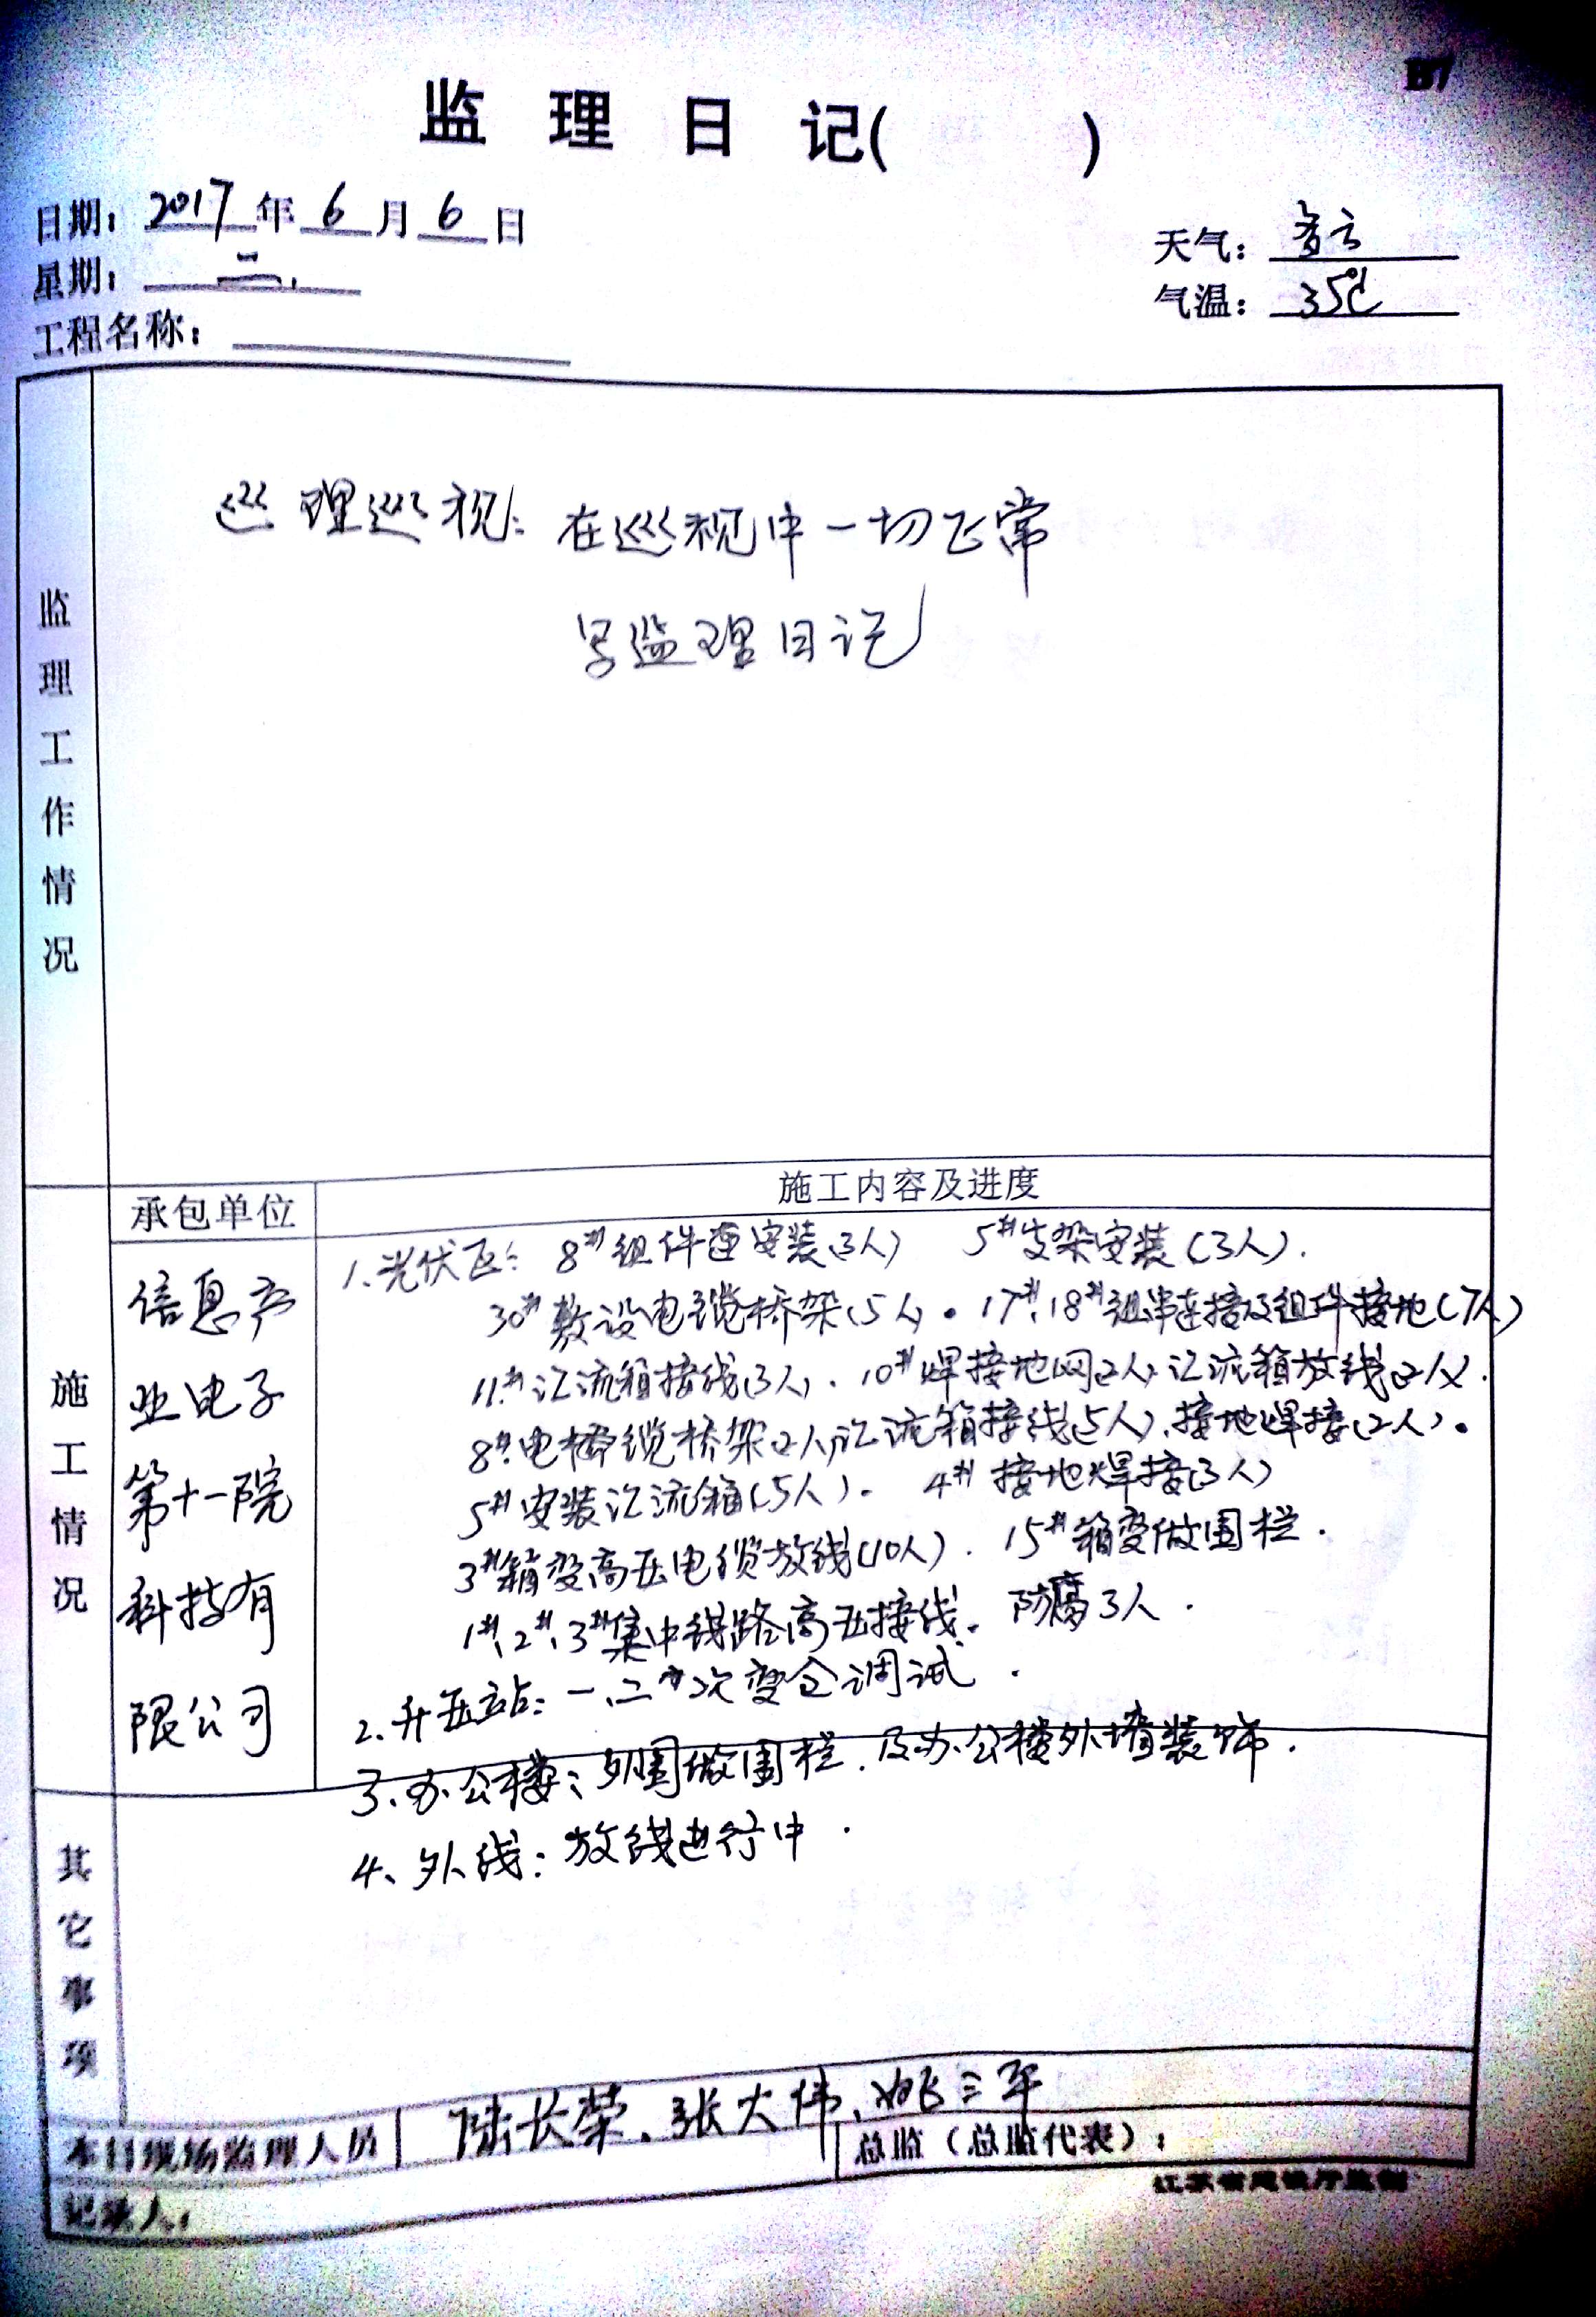 B7
监 理 日 记(        )
日期: 2017 年 6 月 6 日
天气: 多云
星期: 二
气温: 35℃
工程名称:
监理工作情况
巡理巡视: 在巡视中一切正常
写监理日记
施工情况
承包单位
施工内容及进度
信息产
业电子
第十一院
科技有
限公司
1.光伏区: 8#组件安装(3人) 5#支架安装(3人).
30#敷设电缆桥架(5人). 17#、18#组串连接及组件接地(7人)
11#汇流箱接线(3人). 10#焊接地网2人, 汇流箱放线2人.
8#电缆桥架2人, 汇流箱接线(5人), 接地焊接(2人).
5#安装汇流箱(5人). 4#接地焊接(3人)
3#箱变高压电缆放线(10人). 15#箱变做围栏.
1#、2#、3#集中线路高压接线. 防腐3人.
2.升压站: 一、二次变仓调试.
3、办公楼: 外围做围栏. 及办公楼外墙装饰.
4、外线: 放线进行中.
其它事项
本日现场监理人员 陆长荣、张大伟、姚三平
总监(总监代表):
记录人:
江苏省建设厅监制